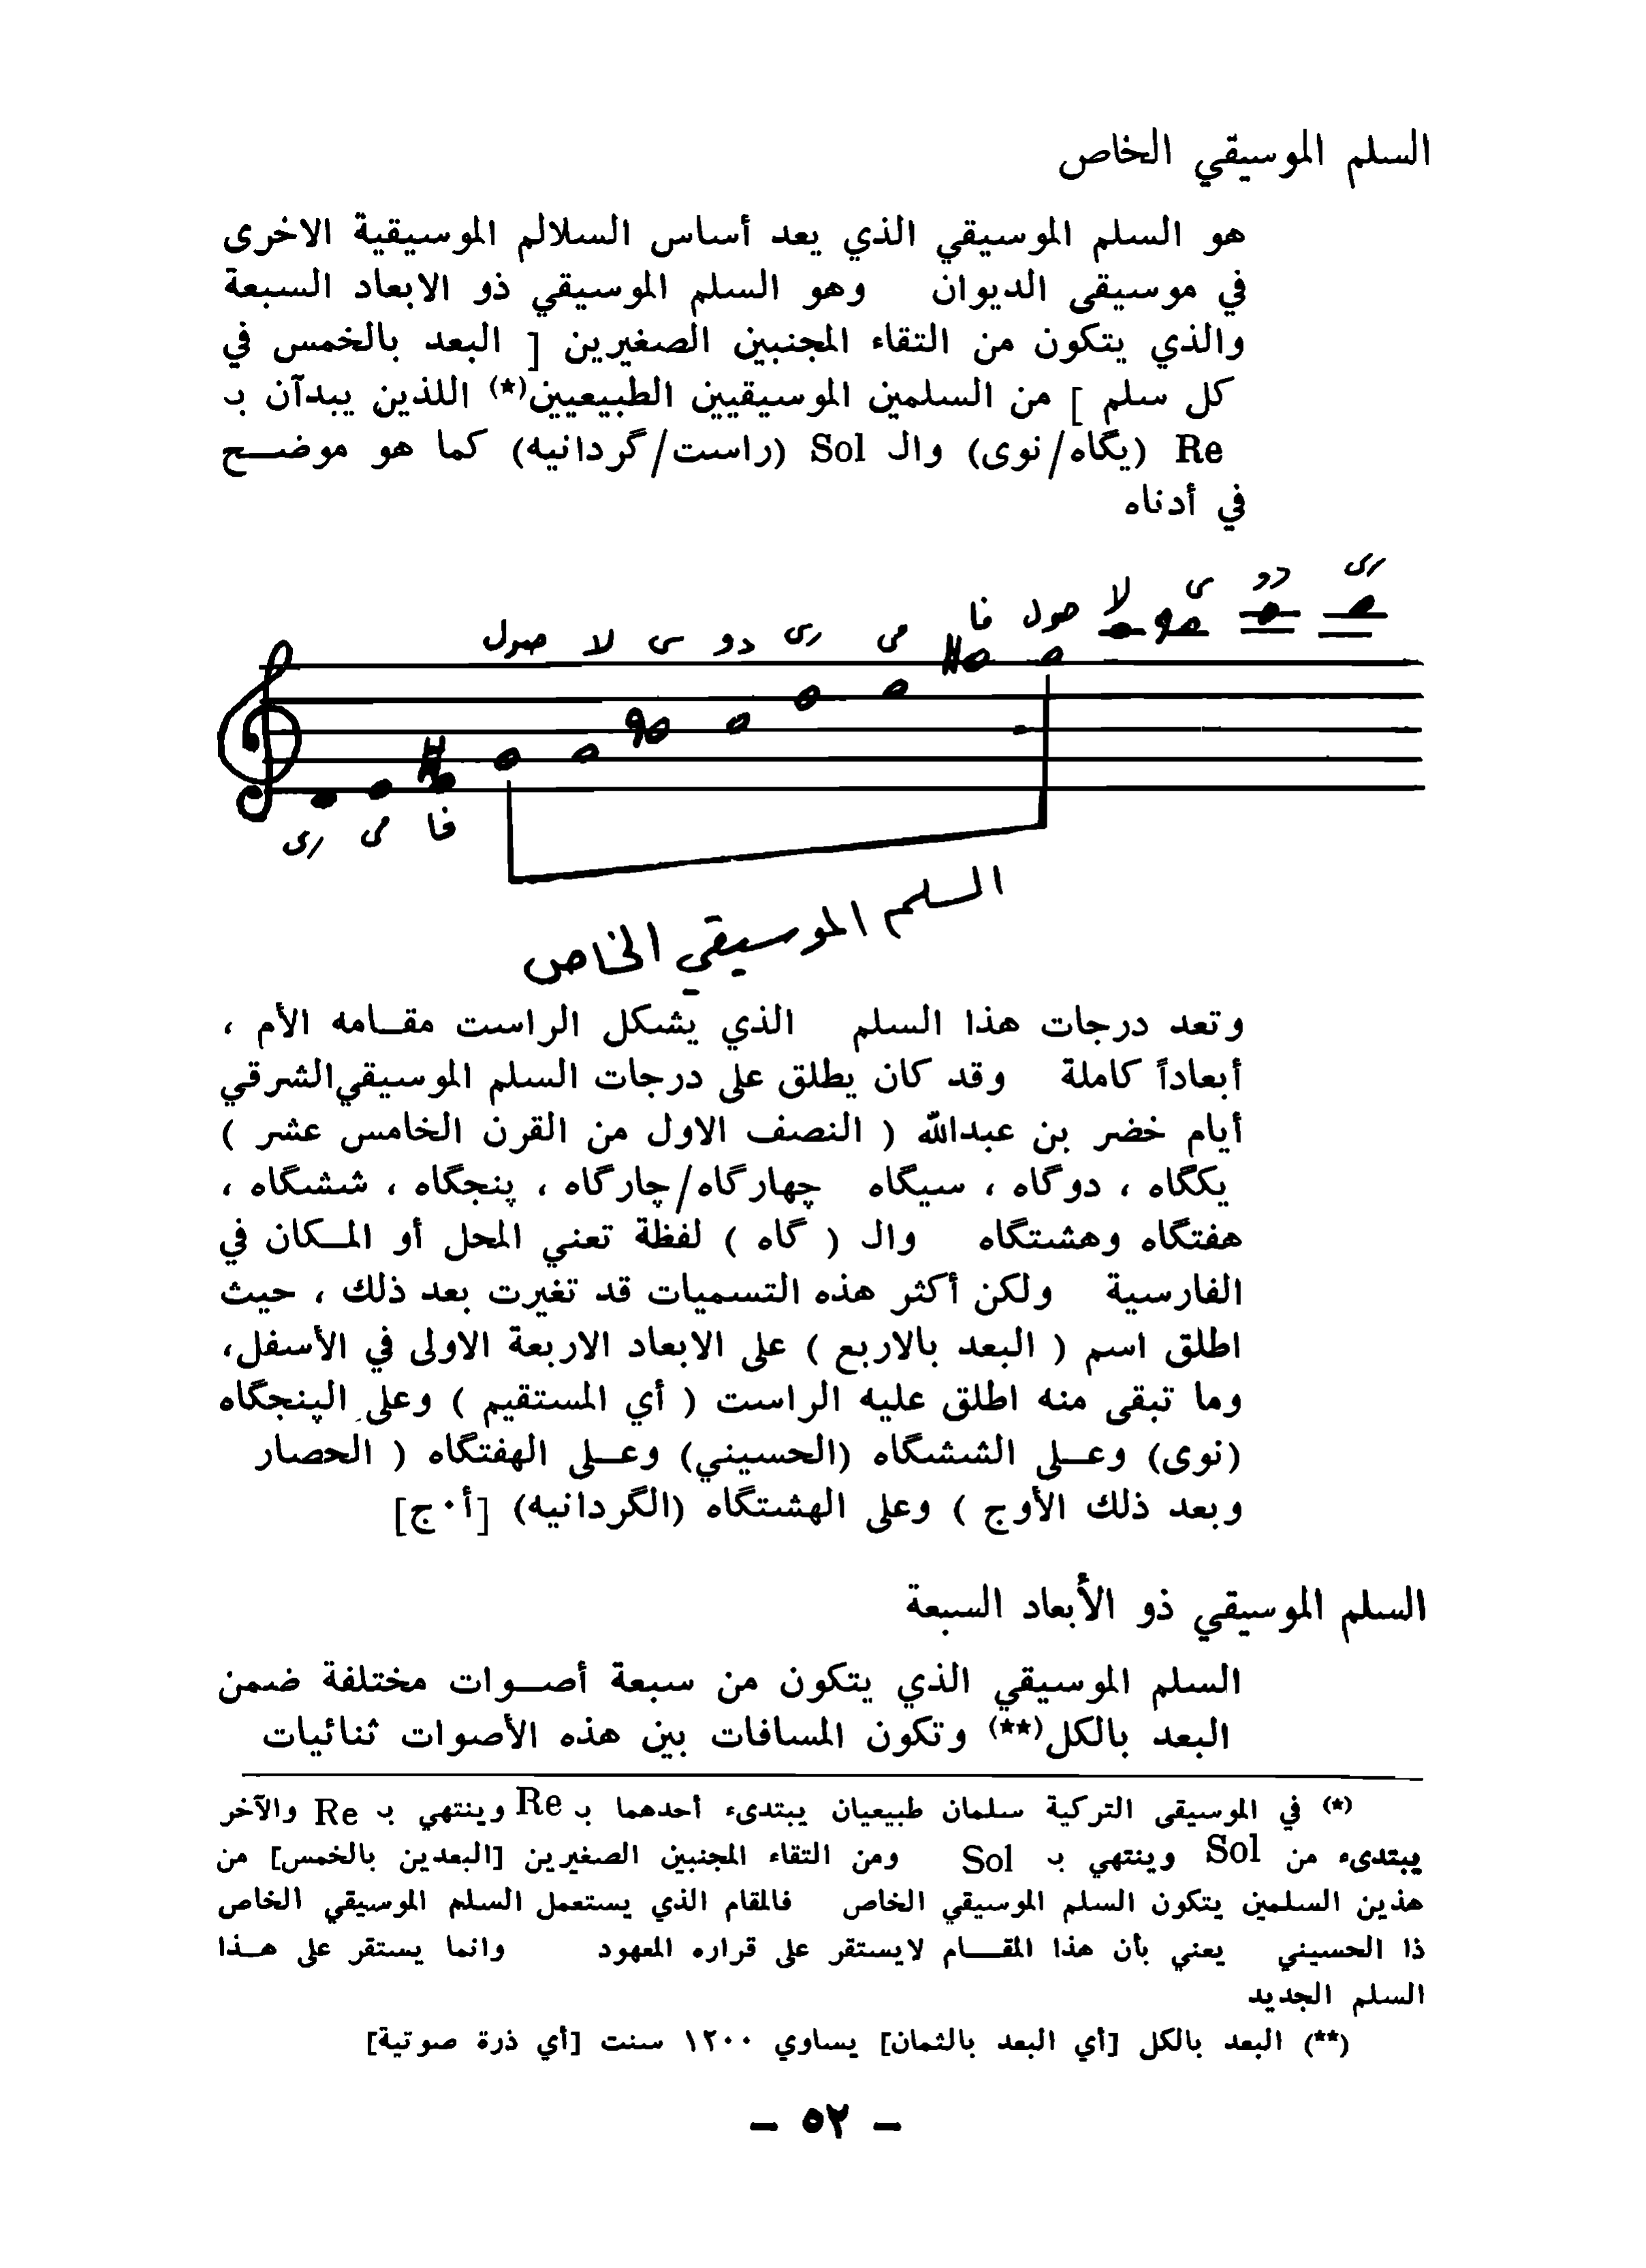 السلم الموسيقي الخاص
هو السلم الموسيقي الذي يعد أساس السلالم الموسيقية الاخرى
في موسيقى الديوان وهو السلم الموسيقي ذو الابعاد السبعة
والذي يتكون من التقاء المجنبين الصغيرين [ البعد بالخمس في
كل سلم ] من السلمين الموسيقيين الطبيعيين(*) اللذين يبدآن بـ
Re (يگاه/نوى) والـ Sol (راست/گردانيه) كما هو موضـح
في أدناه
صول لا سى دو رى مى فا صول لا سى دو رى
رى مى فا
السلم الموسيقي الخاص
وتعد درجات هذا السلم الذي يشكل الراست مقـامه الأم ،
أبعاداً كاملة وقد كان يطلق على درجات السلم الموسيقي الشرقي
أيام خضر بن عبدالله ( النصف الاول من القرن الخامس عشر )
يكگاه ، دوگاه ، سيگاه چهارگاه/چارگاه ، پنجگاه ، ششگاه ،
هفتگاه وهشتگاه والـ ( گاه ) لفظة تعني المحل أو المـكان في
الفارسية ولكن أكثر هذه التسميات قد تغيرت بعد ذلك ، حيث
اطلق اسم ( البعد بالاربع ) على الابعاد الاربعة الاولى في الأسفل،
وما تبقى منه اطلق عليه الراست ( أي المستقيم ) وعلى الپنجگاه
(نوى) وعـلى الششگاه (الحسيني) وعـلى الهفتگاه ( الحصار
وبعد ذلك الأوج ) وعلى الهشتگاه (الگردانيه) [أ٠ج]
السلم الموسيقي ذو الأبعاد السبعة
السلم الموسيقي الذي يتكون من سبعة أصـوات مختلفة ضمن
البعد بالكل(**) وتكون المسافات بين هذه الأصوات ثنائيات
(*) في الموسيقى التركية سلمان طبيعيان يبتدىء أحدهما بـ Re وينتهي بـ Re والآخر
يبتدىء من Sol وينتهي بـ Sol ومن التقاء المجنبين الصغيرين [البعدين بالخمس] من
هذين السلمين يتكون السلم الموسيقي الخاص فالمقام الذي يستعمل السلم الموسيقي الخاص
ذا الحسيني يعني بأن هذا المقـــام لايستقر على قراره المعهود وانما يستقر على هـذا
السلم الجديد
(**) البعد بالكل [أي البعد بالثمان] يساوي ١٢٠٠ سنت [أي ذرة صوتية]
- ٥٢ -